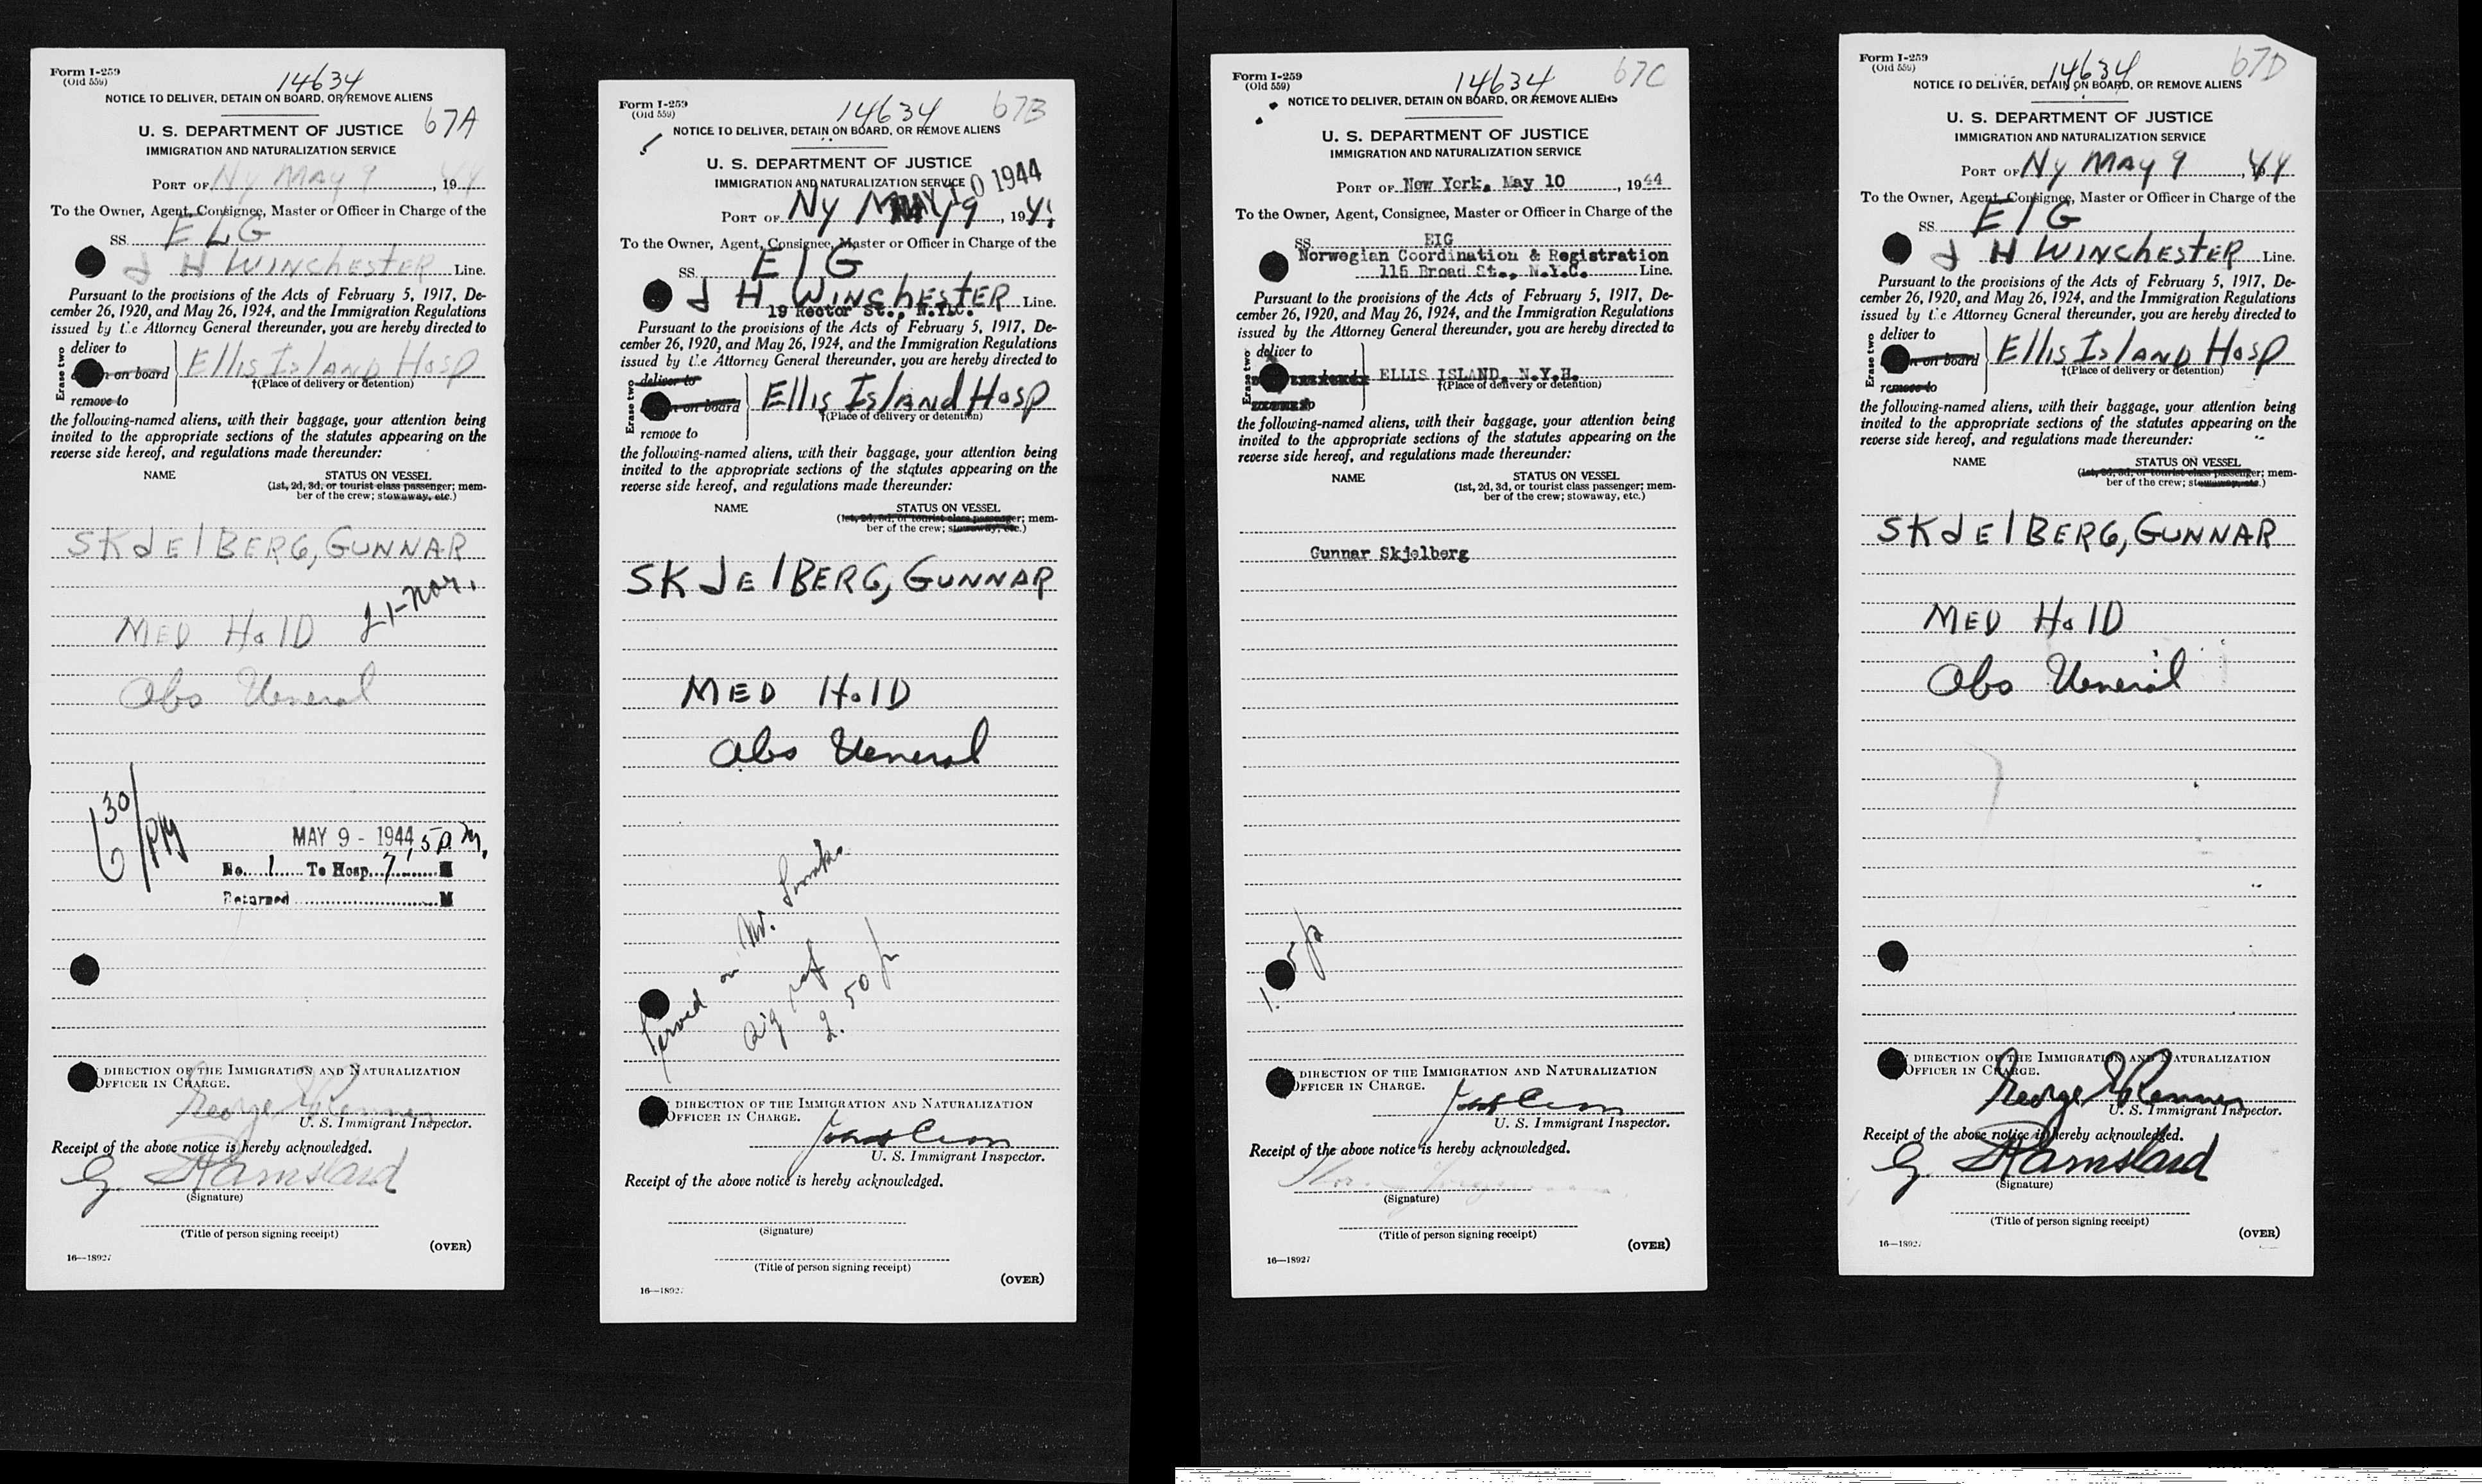 Form I-259
(Old 559)
14634
NOTICE TO DELIVER, DETAIN ON BOARD, OR REMOVE ALIENS
67A
U. S. DEPARTMENT OF JUSTICE
IMMIGRATION AND NATURALIZATION SERVICE
PORT OF Ny MAy 9, 1944
To the Owner, Agent, Consignee, Master or Officer in Charge of the
SS. ELG
J H WINChESTER Line.
Pursuant to the provisions of the Acts of February 5, 1917, De-
cember 26, 1920, and May 26, 1924, and the Immigration Regulations
issued by the Attorney General thereunder, you are hereby directed to
Erase two
deliver to
n on board
remove to
Ellis IslAND Hosp
†(Place of delivery or detention)
the following-named aliens, with their baggage, your attention being
invited to the appropriate sections of the statutes appearing on the
reverse side hereof, and regulations made thereunder:
NAME
STATUS ON VESSEL
(1st, 2d, 3d, or tourist class passenger; mem-
ber of the crew; stowaway, etc.)
SKJElBERG, GUNNAR
21-nor.
MED HolD
Obs Veneral
6 30/PM
MAY 9 - 1944
7 15 P.M.
No. 1 To Hosp. M
Returned M
DIRECTION OF THE IMMIGRATION AND NATURALIZATION
OFFICER IN CHARGE.
George Renner
U. S. Immigrant Inspector.
Receipt of the above notice is hereby acknowledged.
G. Ramsland
(Signature)
(Title of person signing receipt)
(OVER)
16—18927
Form I-259
(Old 559)
14634
67B
NOTICE TO DELIVER, DETAIN ON BOARD, OR REMOVE ALIENS
U. S. DEPARTMENT OF JUSTICE
IMMIGRATION AND NATURALIZATION SERVICE
MAY 10 1944
PORT OF Ny MAy 9, 194
To the Owner, Agent, Consignee, Master or Officer in Charge of the
SS. EIG
J H WINChESTER Line.
19 Rector St., N.Y.C.
Pursuant to the provisions of the Acts of February 5, 1917, De-
cember 26, 1920, and May 26, 1924, and the Immigration Regulations
issued by the Attorney General thereunder, you are hereby directed to
Erase two
deliver to
n on board
remove to
Ellis IslAND Hosp
†(Place of delivery or detention)
the following-named aliens, with their baggage, your attention being
invited to the appropriate sections of the statutes appearing on the
reverse side hereof, and regulations made thereunder:
NAME
STATUS ON VESSEL
(1st, 2d, 3d, or tourist class passenger; mem-
ber of the crew; stowaway, etc.)
SKJElBERG, GUNNAR
MED HolD
Obs Veneral
Served on Mr.
Sig ref
2.50 p
DIRECTION OF THE IMMIGRATION AND NATURALIZATION
OFFICER IN CHARGE.
U. S. Immigrant Inspector.
Receipt of the above notice is hereby acknowledged.
(Signature)
(Title of person signing receipt)
(OVER)
16—1892
Form I-259
(Old 559)
14634
67C
NOTICE TO DELIVER, DETAIN ON BOARD, OR REMOVE ALIENS
U. S. DEPARTMENT OF JUSTICE
IMMIGRATION AND NATURALIZATION SERVICE
PORT OF New York, May 10, 1944
To the Owner, Agent, Consignee, Master or Officer in Charge of the
SS. EIG
Norwegian Coordination & Registration
115 Broad St., N.Y.C. Line.
Pursuant to the provisions of the Acts of February 5, 1917, De-
cember 26, 1920, and May 26, 1924, and the Immigration Regulations
issued by the Attorney General thereunder, you are hereby directed to
Erase two
deliver to
ELLIS ISLAND, N.Y.H.
†(Place of delivery or detention)
the following-named aliens, with their baggage, your attention being
invited to the appropriate sections of the statutes appearing on the
reverse side hereof, and regulations made thereunder:
NAME
STATUS ON VESSEL
(1st, 2d, 3d, or tourist class passenger; mem-
ber of the crew; stowaway, etc.)
Gunnar Skjelberg
DIRECTION OF THE IMMIGRATION AND NATURALIZATION
OFFICER IN CHARGE.
U. S. Immigrant Inspector.
Receipt of the above notice is hereby acknowledged.
(Signature)
(Title of person signing receipt)
(OVER)
16—18927
Form I-259
(Old 559)
14634
67D
NOTICE TO DELIVER, DETAIN ON BOARD, OR REMOVE ALIENS
U. S. DEPARTMENT OF JUSTICE
IMMIGRATION AND NATURALIZATION SERVICE
PORT OF Ny MAy 9, 44
To the Owner, Agent, Consignee, Master or Officer in Charge of the
SS. EIG
J H WINChESTER Line.
Pursuant to the provisions of the Acts of February 5, 1917, De-
cember 26, 1920, and May 26, 1924, and the Immigration Regulations
issued by the Attorney General thereunder, you are hereby directed to
Erase two
deliver to
n on board
remove to
Ellis IslAND Hosp
†(Place of delivery or detention)
the following-named aliens, with their baggage, your attention being
invited to the appropriate sections of the statutes appearing on the
reverse side hereof, and regulations made thereunder:
NAME
STATUS ON VESSEL
(1st, 2d, 3d, or tourist class passenger; mem-
ber of the crew; stowaway, etc.)
SKJElBERG, GUNNAR
MED HolD
Obs Veneral
DIRECTION OF THE IMMIGRATION AND NATURALIZATION
OFFICER IN CHARGE.
George Renner
U. S. Immigrant Inspector.
Receipt of the above notice is hereby acknowledged.
G. Ramsland
(Signature)
(Title of person signing receipt)
(OVER)
16—1892